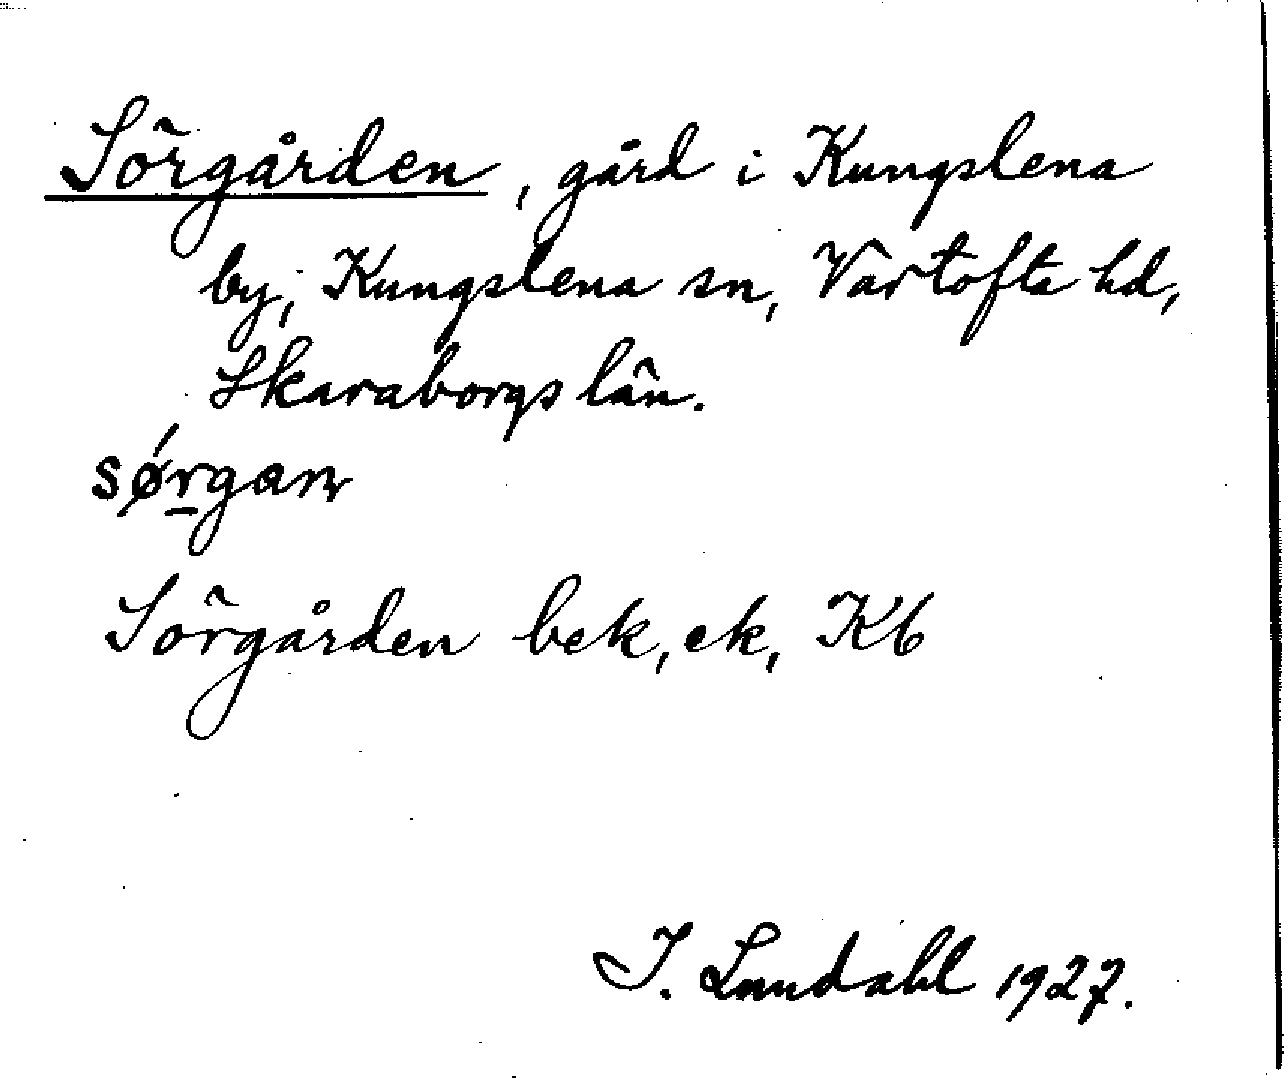 Sörgården, gård i Kungslena
by, Kungslena sn, Vartofta hd,
Skaraborgs län.
sø´r̲gan
Sörgården bek, ek, Kb
I. Lundahl 1927.